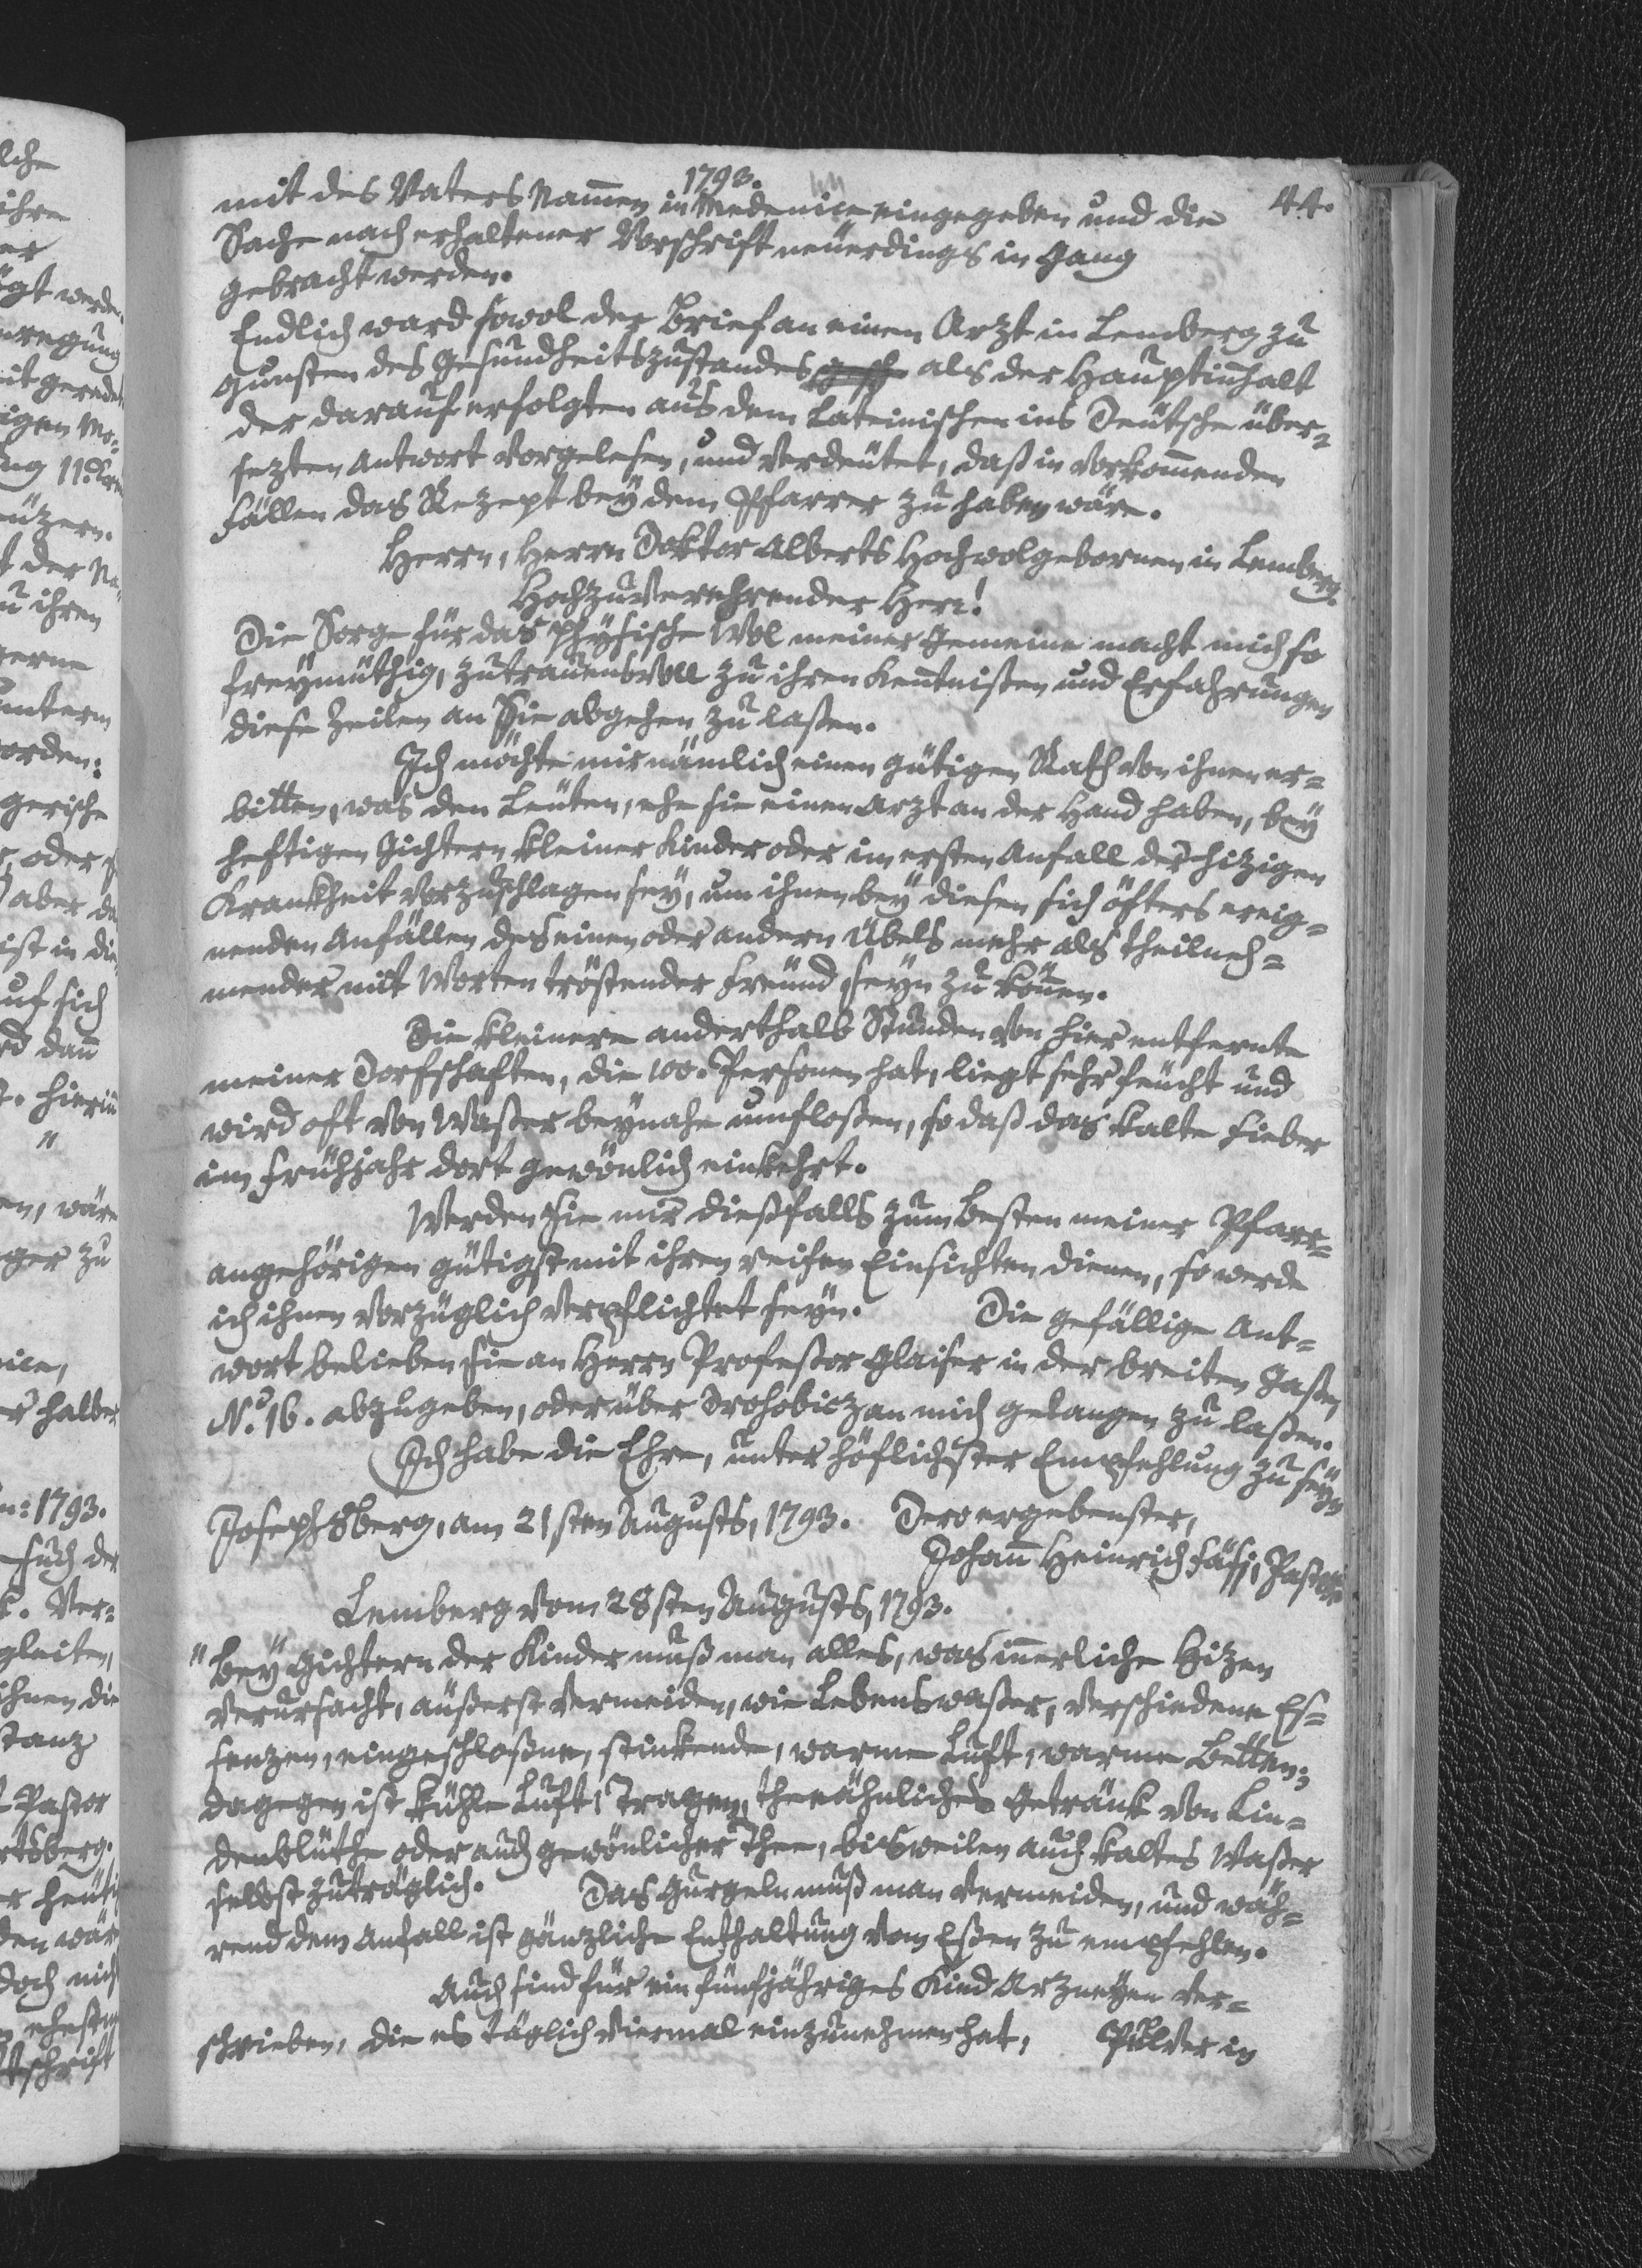 1793.
44.
mit des Vaters Namen in Medenice eingegeben und die
Sache nach erhaltener Vorschrift neuerdings in Gang
gebracht werden.
Endlich ward sowol der Brief an einen Arzt in Lemberg zu
gunsten des Gesundheitszustandes als der Hauptinhalt
der darauf erfolgten aus dem Lateinischen ins Deutsche über-
sezten Antwort vorgelesen, und verdeutet, daß in vorkommenden
Fällen das Rezept bey dem Pfarrer zu haben wäre.
Herrn, Herrn Doktor Alberts Hochwolgebornen in Lemberg.
Hochzuverehrender Herr!
Die Sorge für das physische Wol meiner Gemeine macht mich so
freymüthig, zutrauensvoll zu ihren Kentnißen und Erfahrungen
diese Zeilen an Sie abgehen zu laßen.
Ich möchte mir nämlich einen gütigen Rath von ihnen er-
bitten, was den Leuten, ehe sie einen Arzt an der Hand haben, bey
heftigen Gichtern kleiner Kinder oder im ersten Anfall der hizigen
Krankheit vorzuschlagen sey, um ihnen bey diesen sich öfters ereig-
nenden Anfällen des einen oder andern Übels mehr als theilneh-
mender mit Worten tröstender Freund seyn zu können.
Die kleinere anderthalb Stunden von hier entfernte
meiner Dorfschaften, die 100. Personen hat, liegt sehr feucht und
wird oft von Waßer beynahe umfloßen, so daß das kalte Fieber
im Frühjahr dort gewönlich einkehrt.
Werden Sie mir dießfalls zum Besten meiner Pfarr-
angehörigen gütigst mit ihren reifen Einsichten dienen, so werde
ich ihnen vorzüglich verpflichtet seyn. Die gefällige Ant-
wort belieben Sie an Herrn Profeßor Glaiser in der breiten Gaßen
No. 16. abzugeben, oder über Drohobicz an mich gelangen zu laßen.
Ich habe die Ehre, unter höflichster Empfehlung zu seyn
Josephsberg, am 21sten Augusts, 1793. Dero ergebenster,
Johann Heinrich Fäsi, Pastor
Lemberg vom 28sten Augusts, 1793.
"Bey Gichtern der Kinder muß man alles, was innerliche Hizen
verursacht, äußerst vermeiden, wie Lebenswaßer, verschiedene Es-
senzen, eingeschloßne, stinkende, warme Luft, warme Betten;
dagegen ist kühle Luft, Tragen, theeähnliches Getränk von Lin-
denblüthe oder auch gewönlicher Thee, bisweilen auch kaltes Waßer
selbst zuträglich. Das Gurgeln muß man vermeiden, und wäh-
rend dem Anfall ist gänzliche Enthaltung vom Eßen zu empfehlen.
Auch sind für ein fünfjähriges Kind Arzneyen ver-
schrieben, die es täglich viermal einzunehmen hat, Pulver in